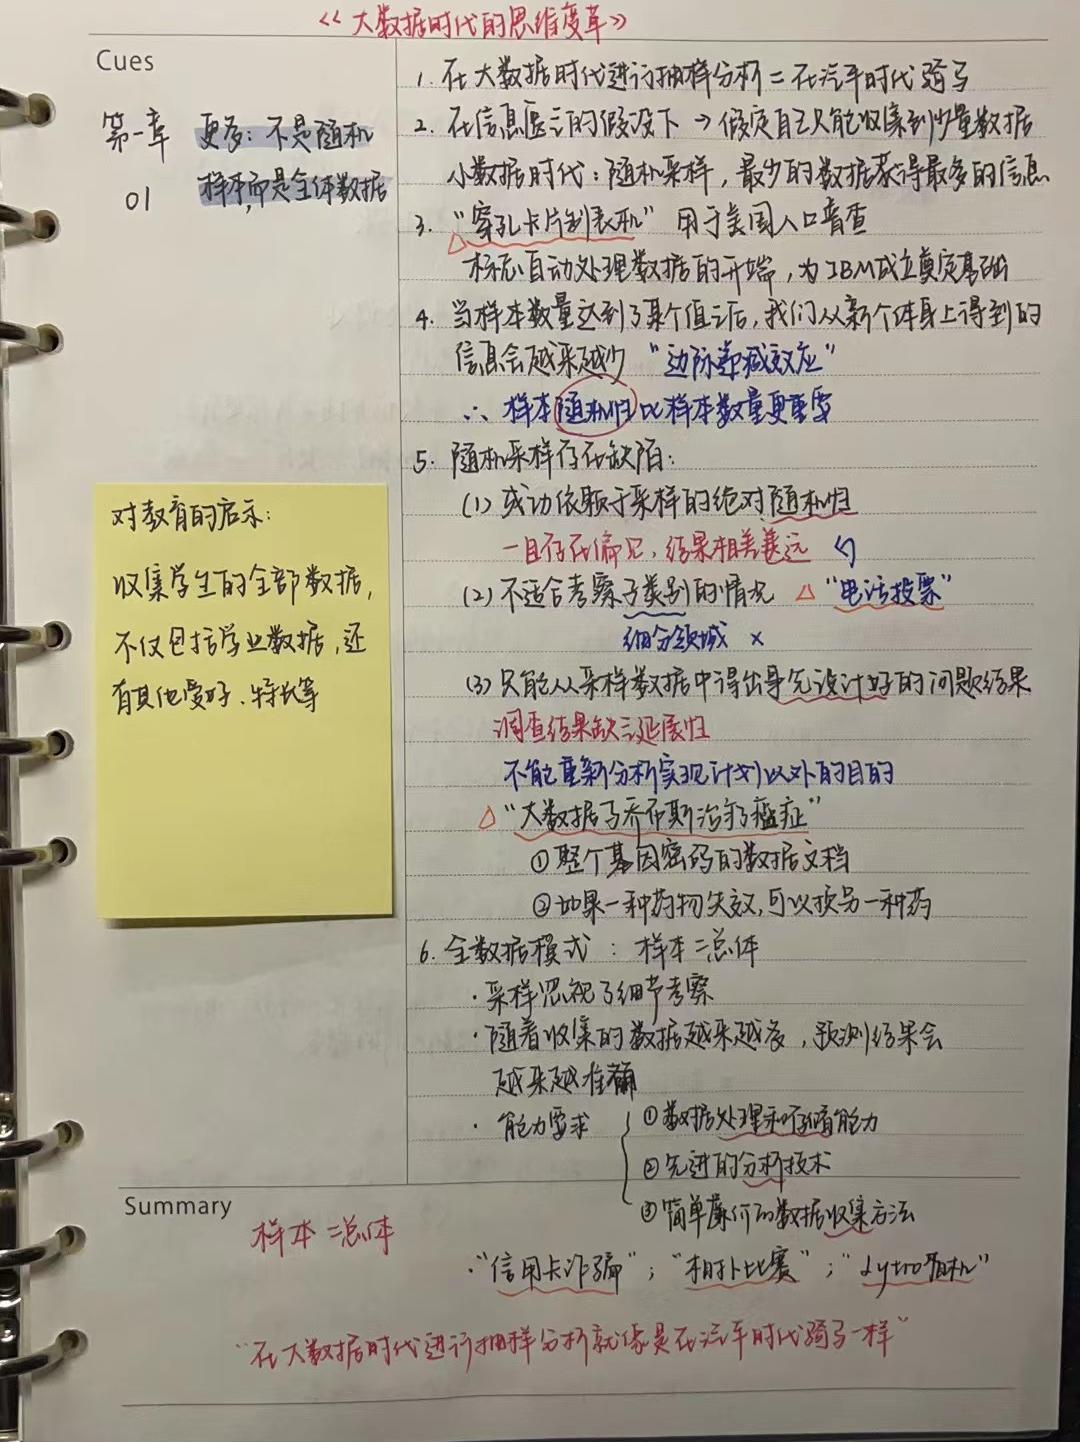 《大数据时代的思维变革》
Cues
第一章 更多:不是随机
01 样本,而是全体数据
1. 在大数据时代进行抽样分析=在汽车时代骑马
2. 在信息匮乏的假设下→假定自己只能收集到少量数据
小数据时代:随机采样,最少的数据获得最多的信息
3. “穿孔卡片制表机” 用于美国人口普查
△ 标志自动处理数据的开端,为IBM成立奠定基础
4. 当样本数量达到了某个值之后,我们从新个体身上得到的
信息会越来越少 “边际递减效应”
∴ 样本随机性比样本数量更重要
5. 随机采样存在缺陷:
(1) 成功依赖于采样的绝对随机性
一旦存在偏见,结果相差甚远
(2) 不适合考察子类别的情况 △“电话投票”
细分领域 ×
(3) 只能从采样数据中得出事先设计好的问题结果
调查结果缺乏延展性
不能重新分析实现计划以外的目的
△“大数据与乔布斯治疗癌症”
①整个基因密码的数据文档
②如果一种药物失效,可以换另一种药
6. 全数据模式:样本=总体
·采样忽视了细节考察
·随着收集的数据越来越多,预测结果会
越来越准确
·能力要求 { ①数据处理和存储能力
②先进的分析技术
③简单廉价的数据收集方法
·“信用卡诈骗”;“相扑比赛”;“Lytro相机”
对教育的启示:
收集学生的全部数据,
不仅包括学业数据,还
有其他爱好、特长等
Summary
样本=总体
“在大数据时代进行抽样分析就像是在汽车时代骑马一样”